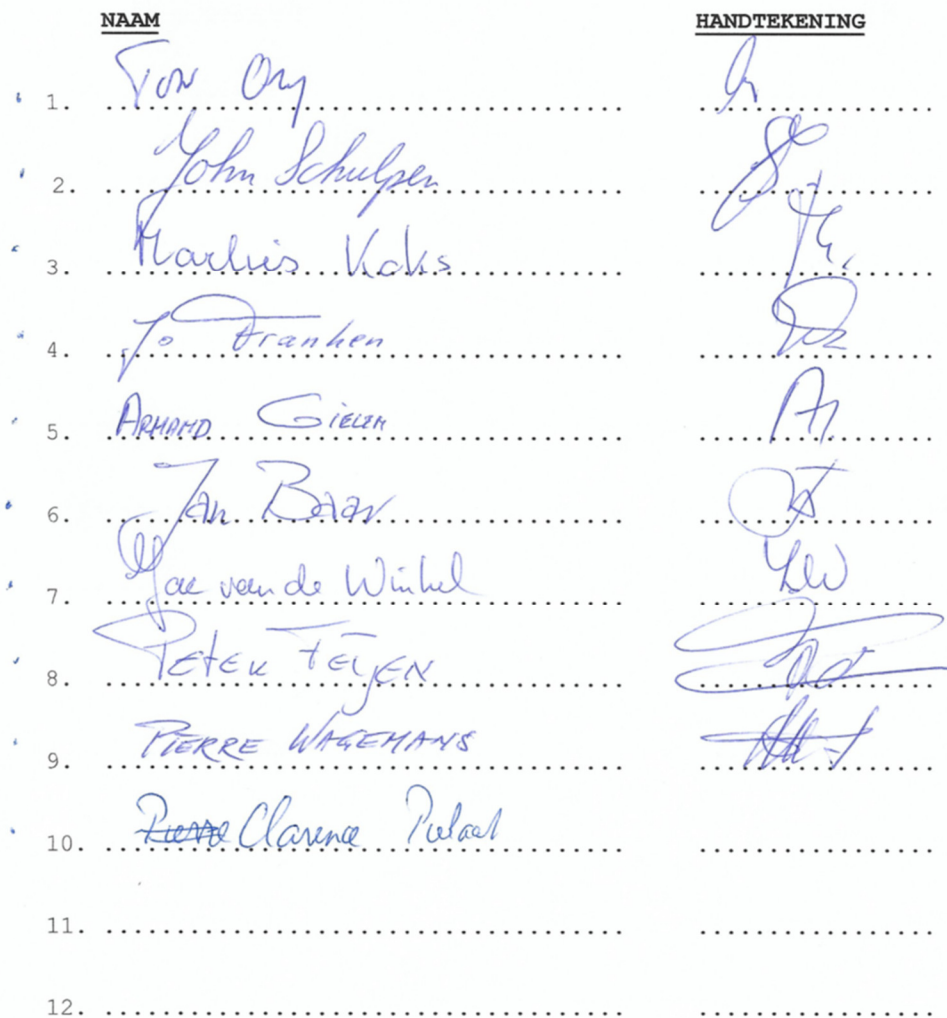 NAAM HANDTEKENING
1. Ton Ory
2. John Schulpen
3. Marlies Koks
4. Jo Franken
5. ARMAND GIELEN
6. Jan Baar
7. van de Winkel
8. PETER FEYEN
9. PIERRE WAGEMANS
10. Pierre Clarence
11.
12.